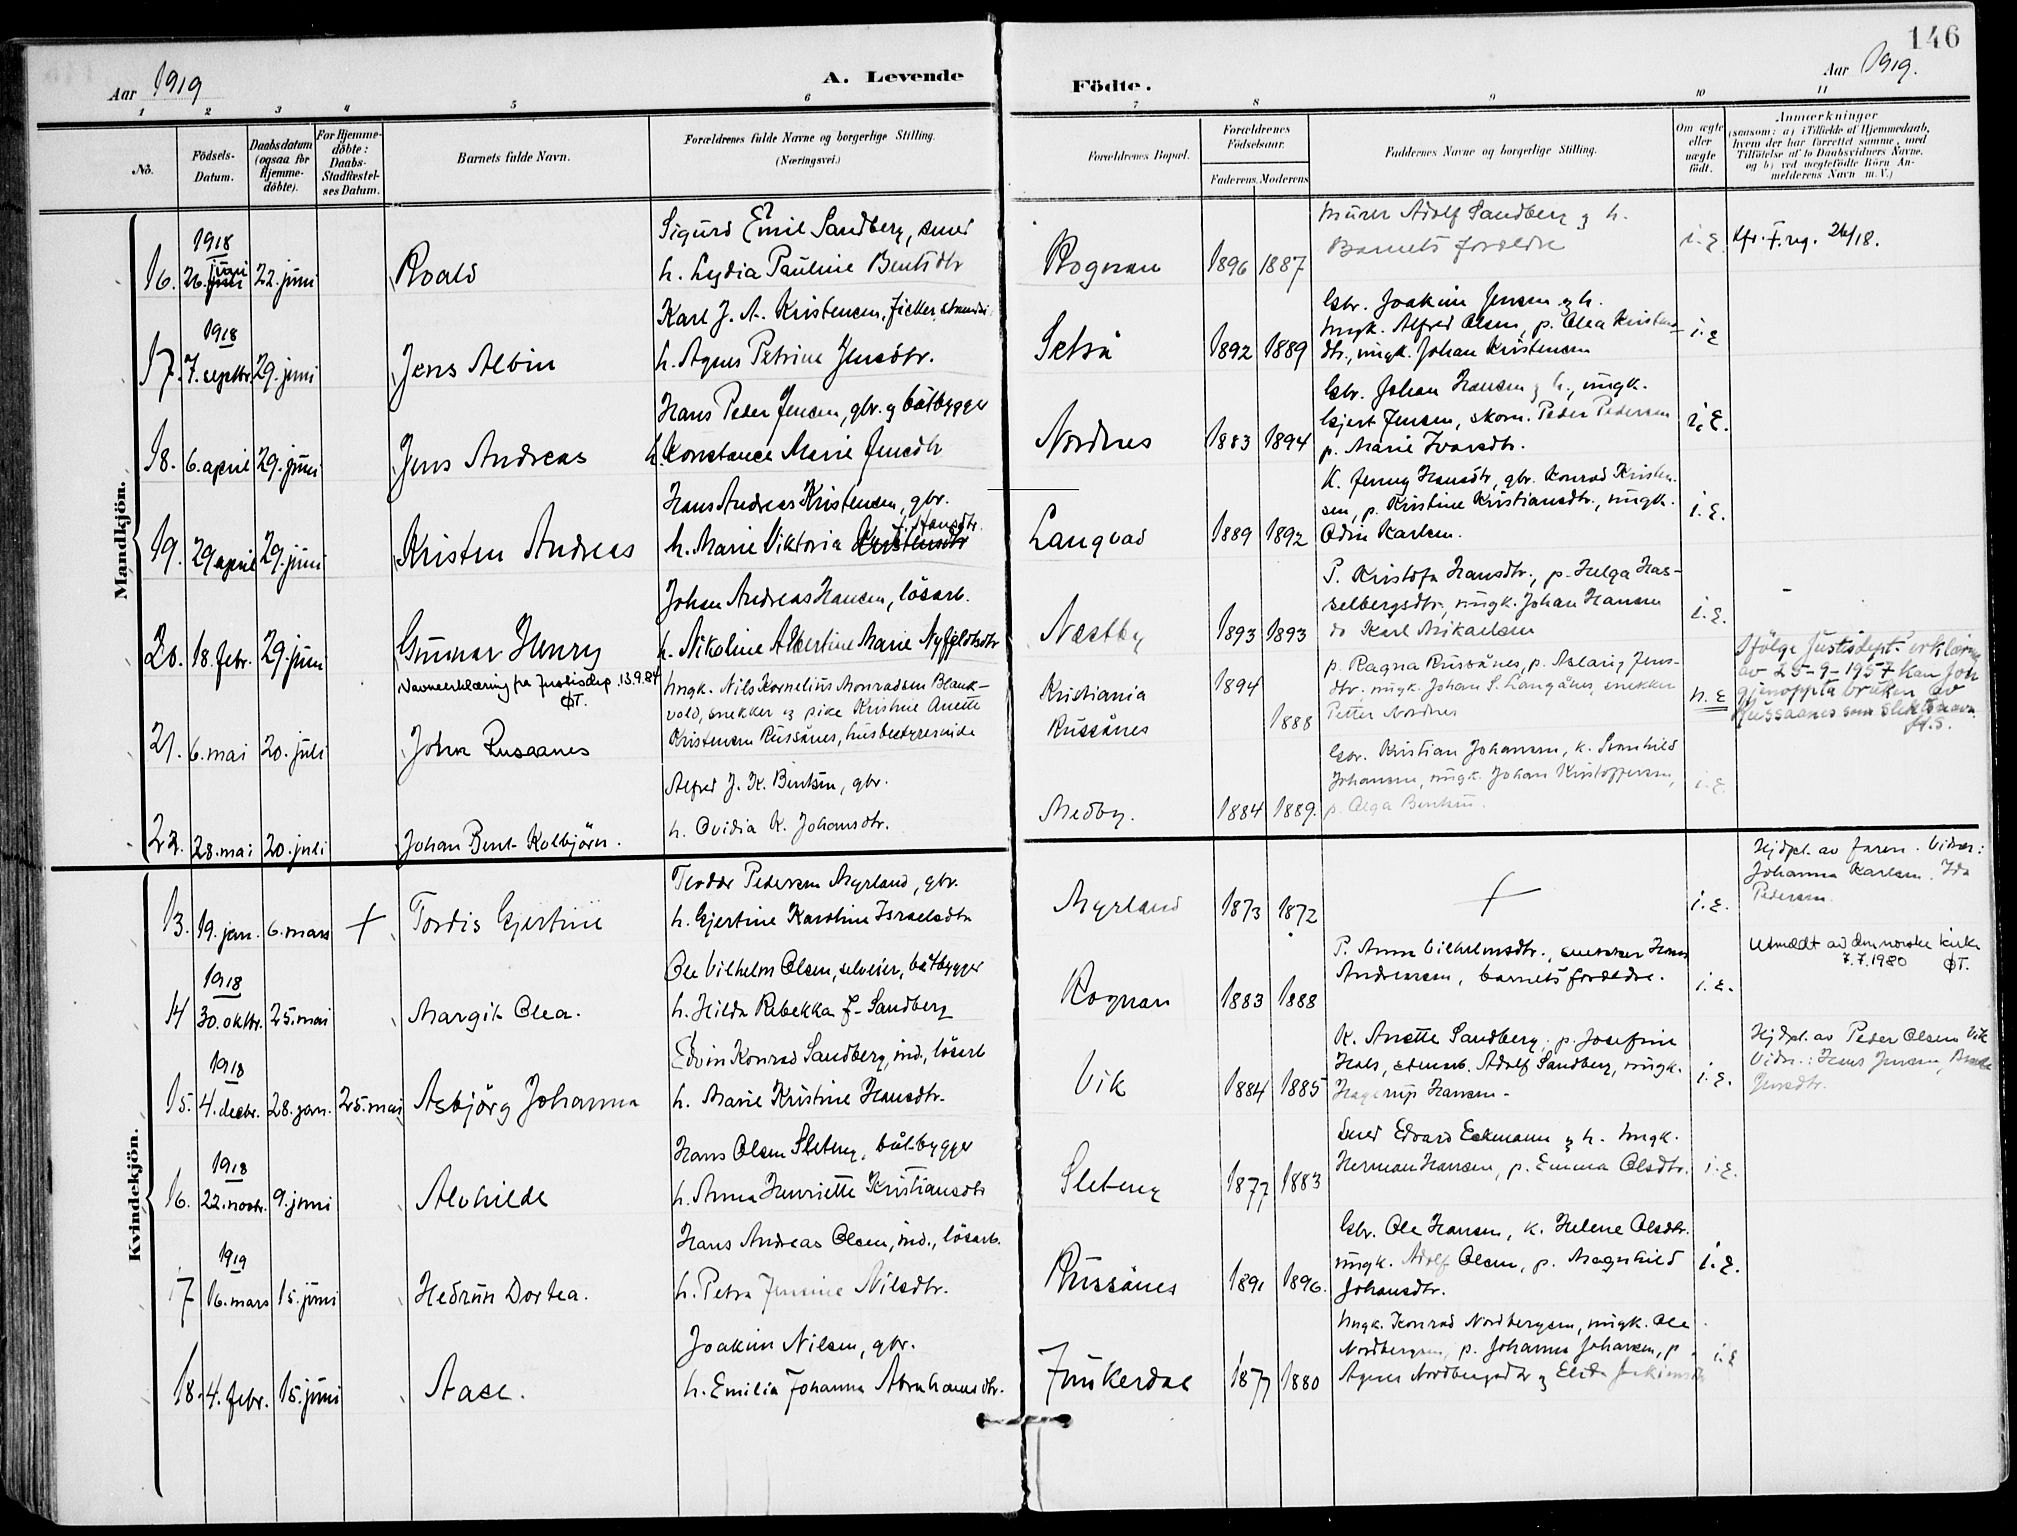 146
Aar 1919
A. Levende
Födte.
Aar 1919.
1 2 3 4 5 6 7 8 9 10 11
No.
Födsels-Datum.
Daabsdatum (ogsaa for Hjemme-döbte).
For Hjemme-döbte: Daabs-Stadfæstel-ses Datum.
Barnets fulde Navn.
Forældrenes fulde Navne og borgerlige Stilling.
(Næringsvei.)
Forældrenes Bopæl.
Forældrenes Födselsaar.
Faderens. Moderens.
Faddernes Navne og borgerlige Stilling.
Om ægte eller uægte født.
Anmærkninger
(saasom: a) i Tilfælde af Hjemmedaab,
hvem der har forrettet samme, med
Tilföielse af to Daabsvidners Navne.
og b) ved uægtefödte Börn An-
melderens Navn m. V.)
Mandkjön.
1918
16. 26. juni 22. juni Roald
Sigurd Emil Sandberg, smed
h. Lydia Pauline Bentsdtr
Rognan 1896 1887
Murer Adolf Sandberg og h.
Barnets foreldre
i. E.
Kfr. F. reg. 26/18.
1918
17. 7. septbr 29. juni Jens Albin
Karl J. A. Kristensen, fisker,
h. Agnes Petrine Jensdtr.
Setså 1892 1889
Gbr. Joakim Jensen og h.
Ungk. Alfred Olsen, p. Olea Kristens-
dtr., ungk. Johan Kristensen
i. E
18. 6. april 29. juni Jens Andreas
Hans Peder Jensen, gbr. og båtbygger
h. Konstance Marie Jensdtr
Nordnes 1883 1894
Gbr. Johan Hansen og h., ungk.
Gjert Jensen, skom. Peder Pedersen
p. Marie Ivarsdtr.
i. E.
19. 29 april 29. juni Kristen Andreas
Hans Andreas Kristensen, gbr.
h. Marie Viktoria Kristensdtr Hansdtr.
Langvad 1889 1892
K. Jenny Hansdtr, gbr. Konrad Kristen-
sen, p. Kristine Kristiansdtr., ungk.
Odin Karlsen.
i. E.
20. 18. febr. 29. juni Gunnar Henry
Johan Andreas Hansen, lösarb.
h. Nikoline Albertine Marie Nyfjeldsdtr
Næstby 1893 1893
P. Kristofa Hansdtr., p. Helga Has-
selbergsdtr, ungk. Johan Hansen
do Karl Mikaelsen
i. E.
Navneerklæring fra Justisdep. 13.9.84
ØT.
21. 6. mai 20. juli John Russaanes
Ungk. Nils Kornelius Monradsen Blank-
vold, snekker og pike Kristine Anette
Kristensen Russånes, husbestyrerinde
Kristiania 1894
Russånes 1888
p. Ragna Russånes, p. Aslaug Jens-
dtr. ungk. Johan S. Langånes, snekker
Petter Nordnes
u. E
Ifölge Justisdept. erklæring
av 25-9-1957 kan John
gjenoppta bruken av
Russaanes som slektsnavn
22. 28. mai 20. juli Johan Bent Kolbjörn.
Alfred J. K. Bentsen, gbr.
h. Ovidia K. Johansdtr.
Medby. 1884 1889.
Gbr. Kristian Johansen, k. Svanhild
Johansen, ungk. Johan Kristoffersen,
p. Olga Bentsen.
i. E.
Kvindekjön.
13. 19. jan. 6. mars + Tordis Gjertine
Teodor Pedersen Myrland, gbr.
h. Gjertine Karoline Israelsdtr
Myrland 1873 1872
+
i. E.
Hjdpt. av faren. Vidner:
Johanna Karlsen. Ida
Pedersen.
1918
14 30. oktbr. 25. mai Margit Olea.
Ole Vilhelm Olsen, selveier, båtbygger
h. Hilda Rebekka f. Sandberg
Rognan 1883 1888
P. Anna Vilhelmsdtr., snekker Hans
Andreasen, barnets foreldre.
i. E.
Utmeldt av den norske kirke
7.7.1980 ØT.
1918
15. 4. decbr. 28. jan. 25. mai Asbjörg Johanna
Edvin Konrad Sandberg, ind., lösarb
h. Marie Kristine Hansdtr.
Vik 1884 1885
K. Anette Sandberg, p. Josefine
Hals, Adolf Sandberg, ungk.
Hagerup Hansen.
i. E.
Hjdpt. av Peder Olsen Vik
Vidn.: Hans Jensen,
Jensdtr.
1918
16. 22. novbr. 9. juni Alvhilde
Hans Olsen Sleteng, båtbygger
h. Anna Henriette Kristiansdtr
Sleteng 1877 1883
Smed Edvard Eckmann og h. Ungk.
Herman Hansen, p. Emma Olsdtr.
i. E.
1919
17 16. mars 15. juni Hedrun Dortea.
Hans Andreas Olsen, ind., lösarb.
h. Petra Jensine Nilsdtr.
Russånes 1891 1896.
Gbr. Ole Hansen, k. Helene Olsdtr.
ungk. Adolf Olsen, p. Magnhild
Johansdtr.
i. E.
18. 4. febr. 15. juni Aase.
Joakim Nilsen, gbr.
h. Emilie Johanna Abrahamsdtr.
Junkerdal 1877 1880
Ungk. Konrad Nordbergsen, ungk. Ole
Nordbergsen, p. Johanna Johansen, p.
Agnes Nordbergsdtr og Elida
i. E